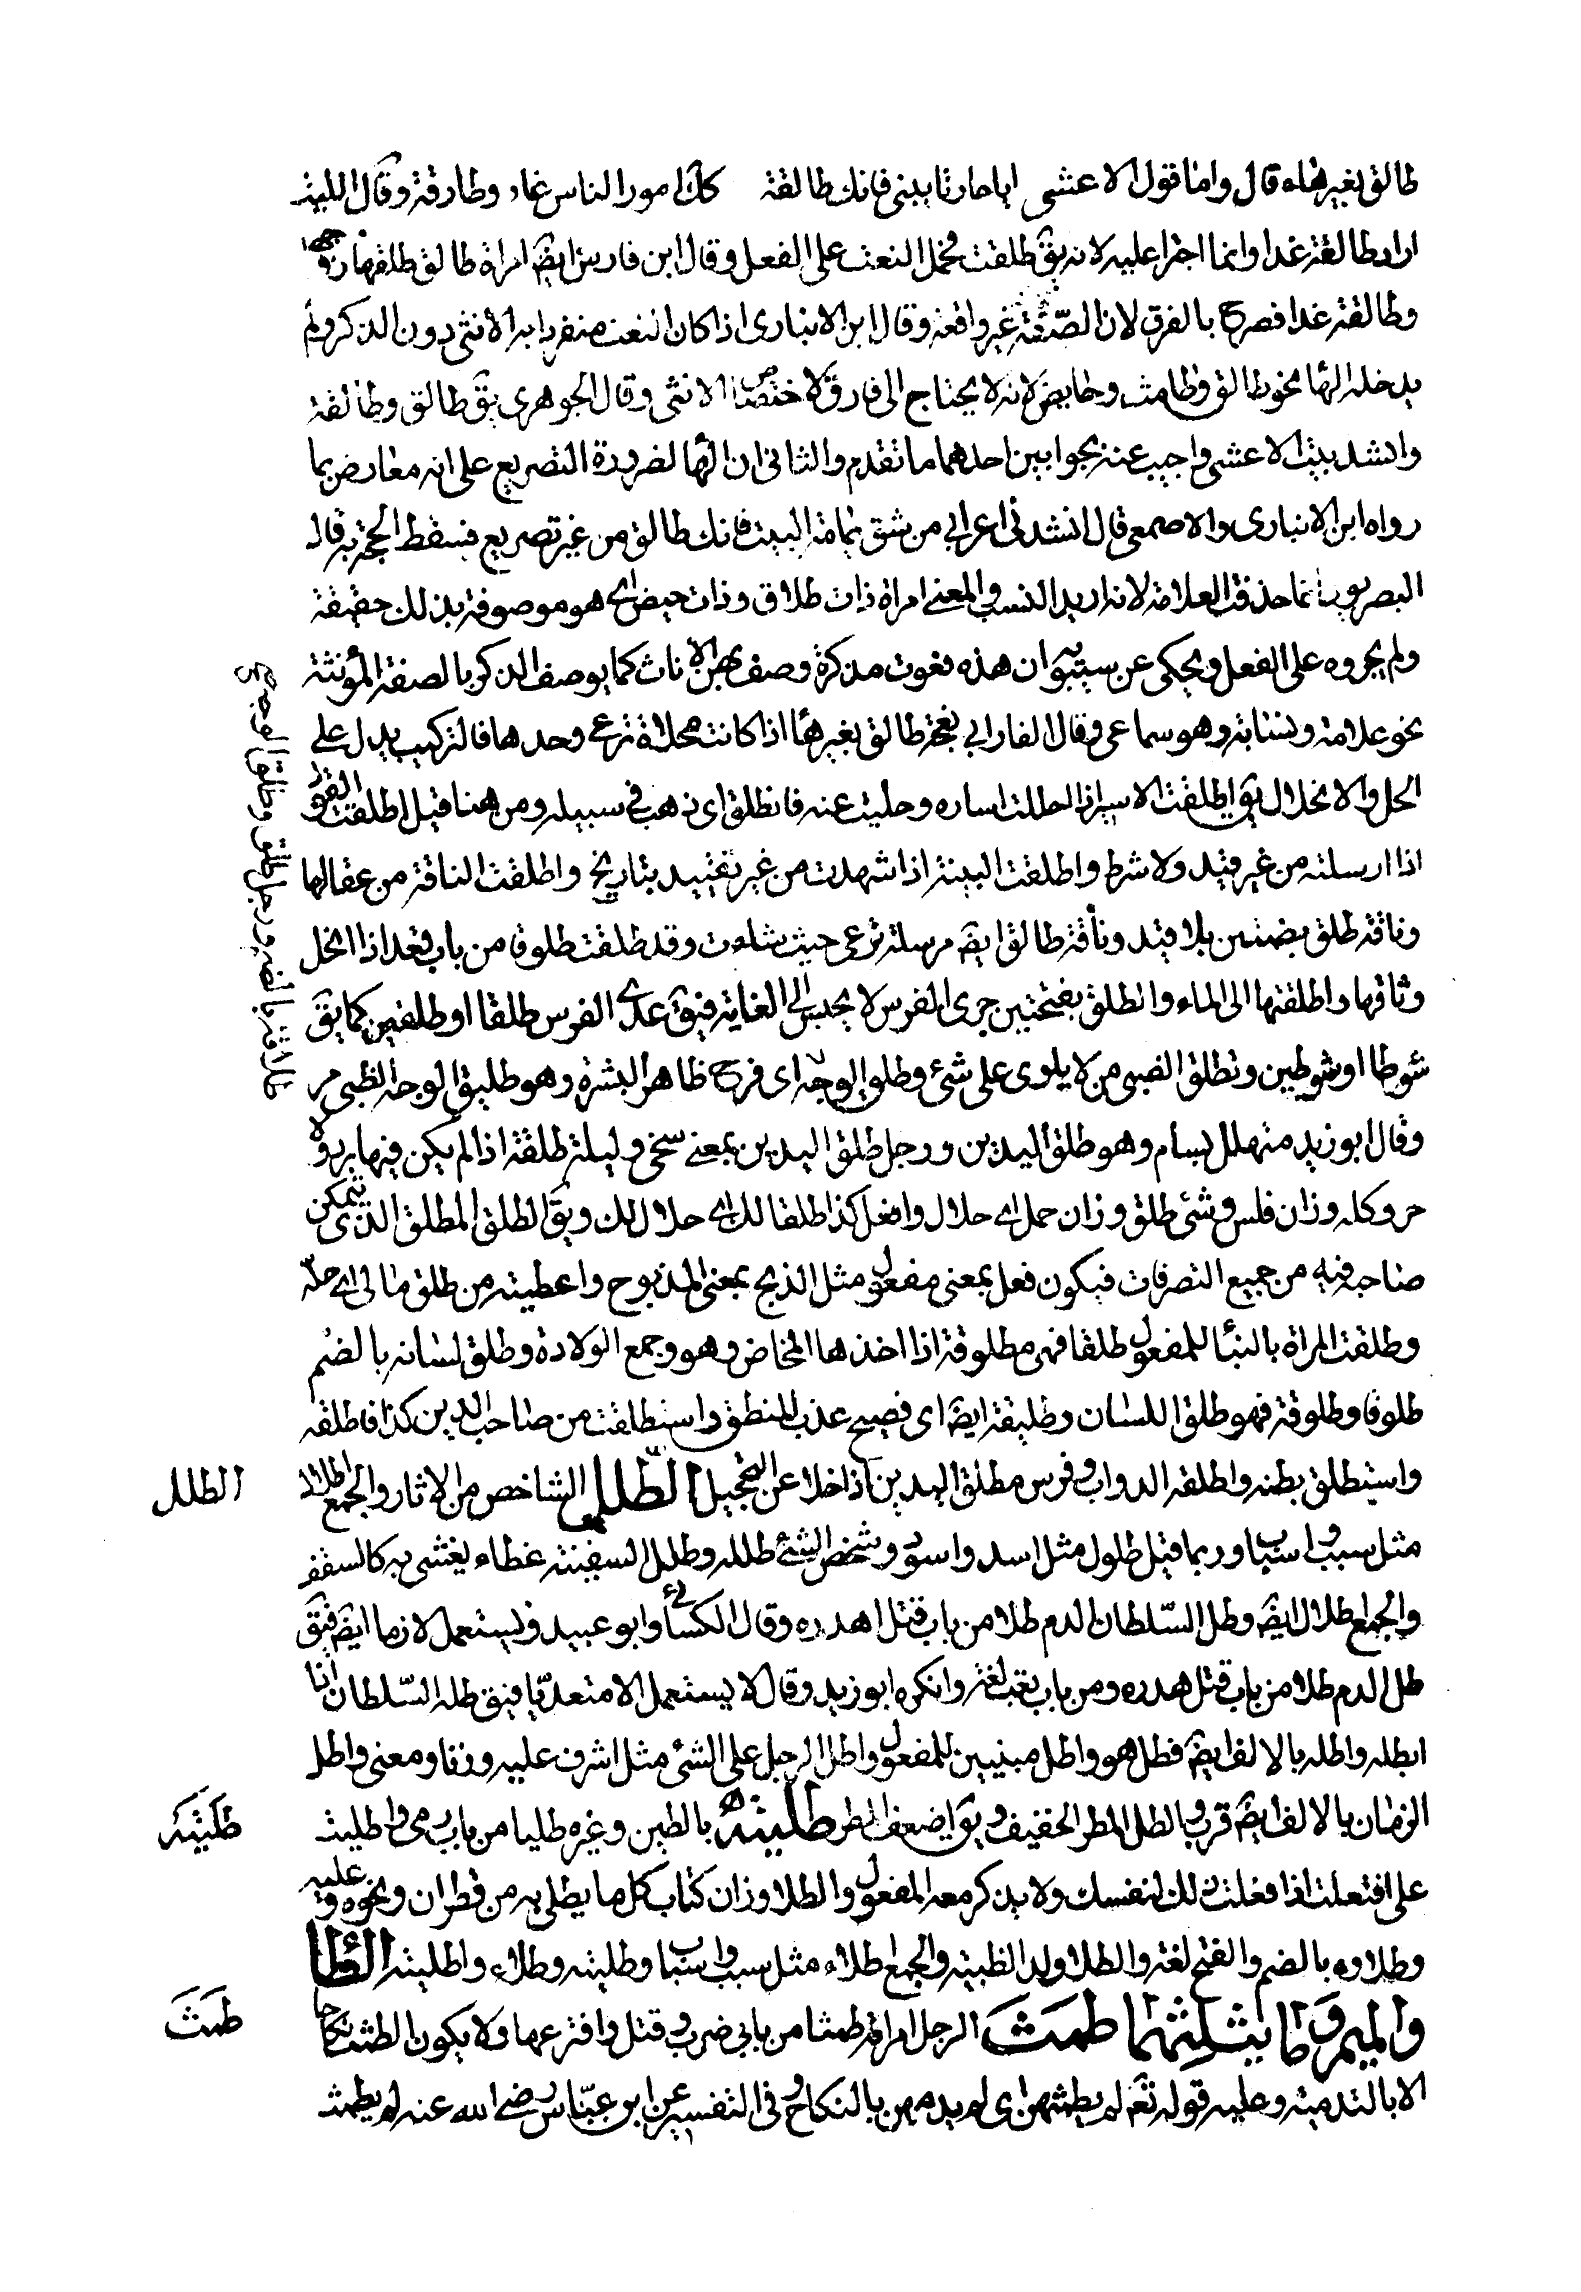 طالق بغير هاء قال واما قول الاعشى ايا جارتا بينى فانك طالقة كذاك امور الناس غاد وطارقة وقال الليث
اراد طالقة غدا وانما اجترا عليه لانه يق طلقت فحمل النعت على الفعل وقال ابن فارس ايض امراة طالق طلقها زوجها
وطالقة غدا فصرح بالفرق لان الصفة غير واقعة وقال ابن الانبارى اذا كان النعت منفردا به الانثى دون الذكر ولم
يدخله الهاء نحو طالق وطامث وحايض لانه لا يحتاج الى فارق لاختصاص الانثى وقال الجوهرى يق طالق وطالقة
وانشد بيت الاعشى واجيب عنه بجوابين احدهما ما تقدم والثانى ان الهاء لضرورة التصريع على انه معارض بما
رواه ابن الانبارى والاصمعى قال انشدنى اعرابي من شق يمامة البيت فانك طالق من غير تصريع فسقط الحجة به قال
البصريون انما حذفت العلامة لانه اريد النسب والمعنى امراة ذات طلاق وذات حيض اى هو موصوفة بذلك حقيقة
ولم يجروه على الفعل ويحكى عن سيبويه ان هذه نعوت مذكرة وصف بهن الاناث كما يوصف الذكر بالصفة المؤنثة
نحو علامة ونسابة وهو سماعى وقال الفارابي نعجة طالق بغير هاء اذا كانت مخلاة ترعى وحدها فالتركيب يدل على
الحل والانحلال يق اطلقت الاسير اذا حللت اساره وخليت عنه فانطلق اى ذهب فى سبيله ومن هنا قيل اطلقت القول
اذا ارسلته من غير قيد ولا شرط واطلقت البينة اذا شهدت من غير تقييد بتاريخ واطلقت الناقة من عقالها
وناقة طلق بضمتين بلا قيد وناقة طالق ايض مرسلة ترعى حيث شاءت وقد طلقت طلوقا من باب قعد اذا انحل
وثاقها واطلقتها الى الماء والطلق بفتحتين جرى الفرس لا يحبس الى الغاية فيق عدى الفرس طلقا او طلقين كما يق
شوطا او شوطين وتطلق الضبى من لا يلوى على شئ وطلق الوجه اى فرح ظاهر البشرة وهو طليق الوجه الظبى مر
وقال ابو زيد متهلل بسام وهو طلق اليدين ورجل طلق اليدين بمعنى سخى وليلة طلقة اذا لم يكن فيها برد ولا
حر وكله وزان فلس وشئ طلق وزان حمل اى حلال وافعل كذا طلقا لك اى حلال لك ويق الطلق المطلق الذى يتمكن
صاحبه فيه من جميع التصرفات فيكون فعل بمعنى مفعول مثل الذبح بمعنى المذبوح واعطيته من طلق مالى اى حله
وطلقت المراة بالبناء للمفعول طلقا فهى مطلوقة اذا اخذها المخاض وهو وجع الولادة وطلق لسانه بالضم
طلوقا وطلوقة فهو طلق اللسان وطليقة ايض اى فصيح عذب المنطق واستطلقت من صاحب الدين كذا فاطلقه
واستطلق بطنه واطلقه الدواب وفرس مطلق اليدين اذا خلا عن التحجيل الطلل الشاخص من الاثار والجمع اطلال
مثل سبب واسباب وربما قيل طلول مثل اسد واسود وشخص الشئ طلله وطلل السفينة غطاء يغشى به كالسقف
والجمع اطلال ايض وطل السلطان الدم طلا من باب قتل اهدره وقال الكسائى وابو عبيد ويستعمل لازما ايض فيق
طل الدم طلا من باب قتل هدره ومن باب تعب لغة وانكره ابو زيد وقال لا يستعمل الا متعديا فيق طله السلطان اذا
ابطله واطله بالالف ايض فطل هو واطل مبنيين للمفعول واطل الرجل على الشئ مثل اشرف عليه وزنا ومعنى واطل
الزمان بالالف ايض قرب والطل المطر الخفيف ويق اضعف المطر طليته بالطين وغيره طليا من باب رمى واطليت
على افتعلت اذا فعلت ذلك لنفسك ولا يذكر معه المفعول والطلا وزان كتاب كل ما يطلى به من قطران ونحوه وعليه
وطلاوه بالضم والفتح لغة والطلا ولد الظبية والجمع اطلاء مثل سبب واسباب وطليته وطلاء واطليته الطاء
والميم وما يثلثهما طمث الرجل امراته طمثا من بابي ضرب وقتل وافترعها ولا يكون الطمث نكاحا
الا بالتدمية وعليه قوله تع لم يطمثهن اى لم يدمهن بالنكاح وفى التفسير عن ابن عباس رضى الله عنه لم يطمث
طلاقة بالضم ورجل طلق وطلق الوجه ع
الطلل
طليته
طمث